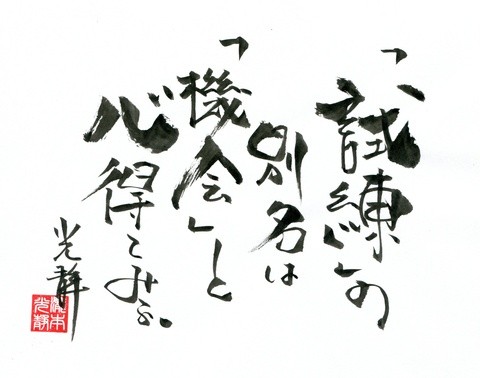 「試練」の
別名は
「機会」と
心得てみる。
光静
本
光静